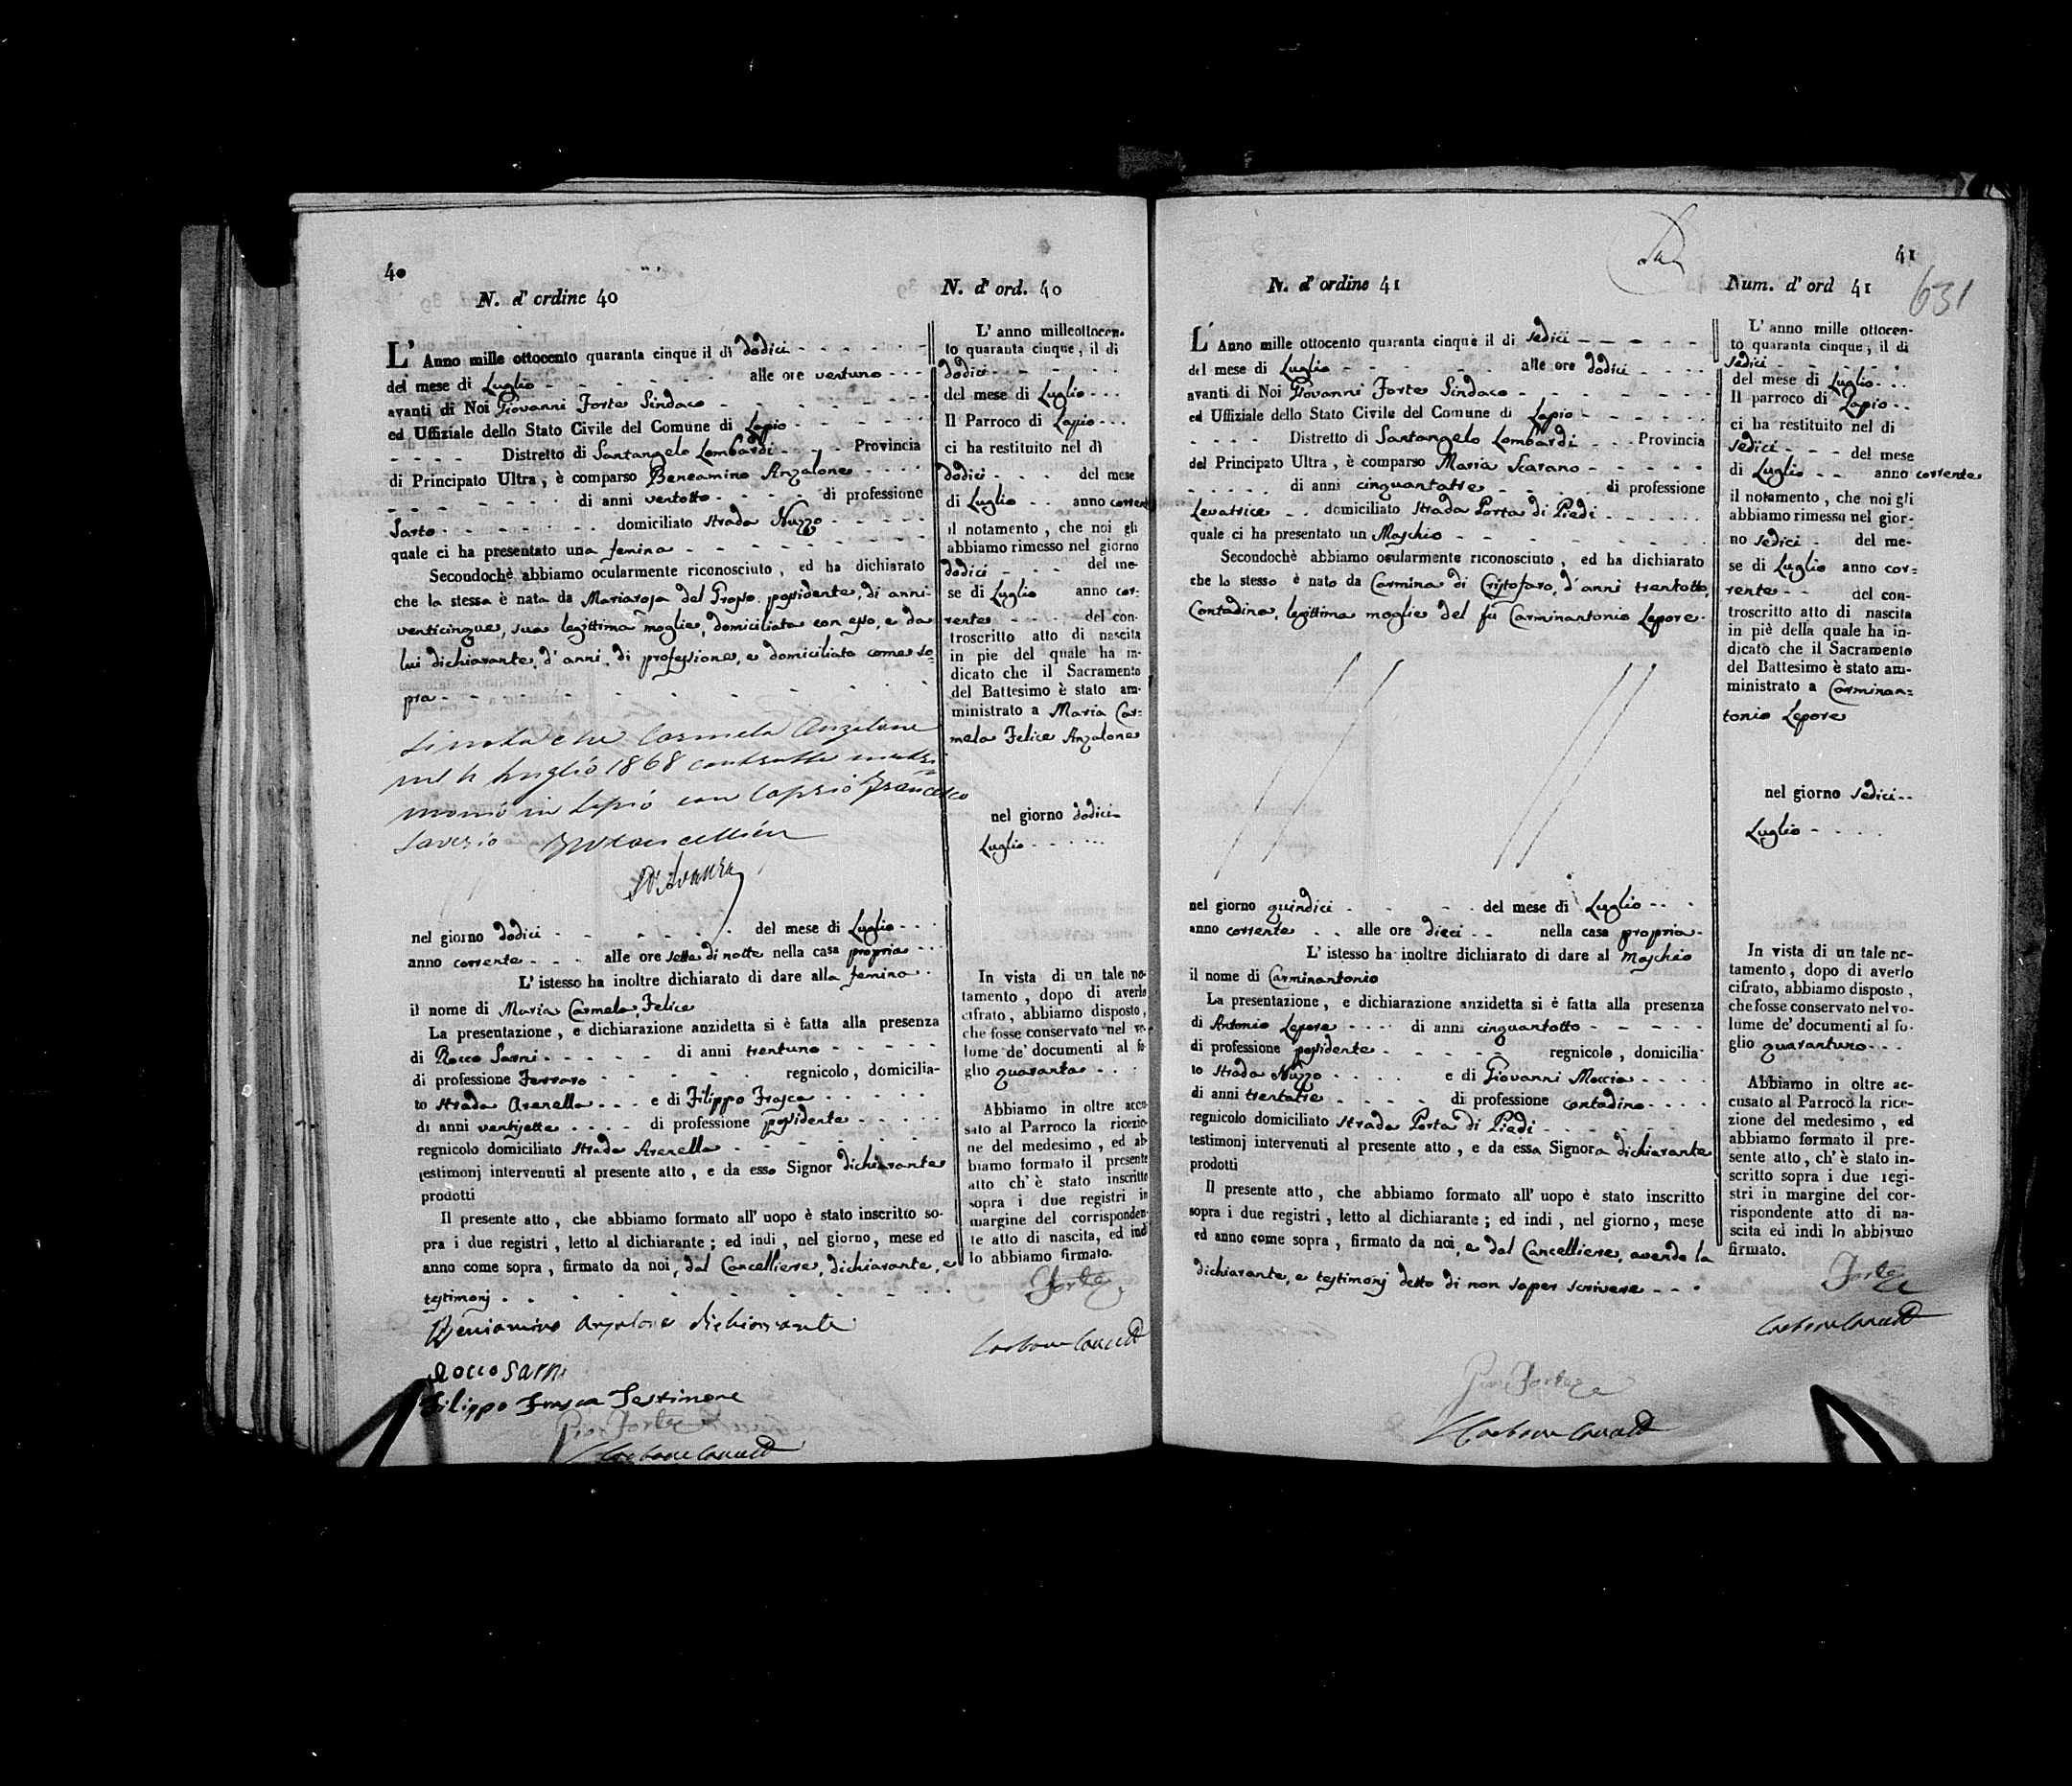 40
N. d' ordine 40
L' Anno mille ottocento quaranta cinque il dì dodici
del mese di Luglio alle ore ventuno
avanti di Noi Giovanni Forte Sindaco
ed Uffiziale dello Stato Civile del Comune di Lapio
Distretto di Santangelo Lombardi Provincia
di Principato Ultra, è comparso Beneamino Anzalone
di anni ventotto di professione
Sarto domiciliato strada Nuzzo
quale ci ha presentato una femina
Secondochè abbiamo ocularmente riconosciuto, ed ha dichiarato
che la stessa è nata da Mariarosa del Grosso possidente, di anni
venticinque, sua legittima moglie, domiciliata con esso, e da
lui dichiarante, d' anni, di professione, e domiciliato come so=
pra
Si nota che Carmela Anzalone
nel Luglio 1868 contratto matri
monio in Lapio con Caprio Francesco
Saverio Il Cancelliere
D'Avanza
nel giorno dodici del mese di Luglio
anno corrente alle ore sette di notte nella casa propria
L' istesso ha inoltre dichiarato di dare alla femina
il nome di Maria Carmela Felice
La presentazione, e dichiarazione anzidetta si è fatta alla presenza
di Rocco Sarni di anni trentuno
di professione Ferraro regnicolo, domicilia-
to strada Arenella e di Filippo Frasca
di anni ventisette di professione possidente
regnicolo domiciliato strada Arenella
testimonj intervenuti al presente atto, e da esso Signor dichiarante
prodotti
Il presente atto, che abbiamo formato all' uopo è stato inscritto so-
pra i due registri, letto al dichiarante; ed indi, nel giorno, mese ed
anno come sopra, firmato da noi, dal Cancelliere, dichiarante, e
testimonj
Beniamino Anzalone dichiarante
Rocco Sarni
Filippo Frasca Testimone
Gio: Forte
Carbone Cancell
N. d' ord. 40
L' anno milleottocen-
to quaranta cinque, il di
dodici
del mese di Luglio
Il Parroco di Lapio
ci ha restituito nel dì
dodici del mese
di Luglio anno corrente
il notamento, che noi gli
abbiamo rimesso nel giorno
dodici del me-
se di Luglio anno cor=
rente del con-
troscritto atto di nascita
in pie del quale ha in-
dicato che il Sacramento
del Battesimo è stato am-
ministrato a Maria Car=
mela Felice Anzalone
nel giorno dodici
Luglio
In vista di un tale no-
tamento, dopo di averlo
cifrato, abbiamo disposto,
che fosse conservato nel vo-
lume de' documenti al fo-
glio quaranta
Abbiamo in oltre accu-
sato al Parroco la ricezio-
ne del medesimo, ed ab-
biamo formato il presente
atto ch' è stato inscritto
sopra i due registri in
margine del corrisponden-
te atto di nascita, ed indi
lo abbiamo firmato.
Forte
Carbone Cancell
41
631
N. d' ordine 41
L' Anno mille ottocento quaranta cinque il di sedici
del mese di Luglio alle ore dodici
avanti di Noi Giovanni Forte Sindaco
ed Uffiziale dello Stato Civile del Comune di Lapio
Distretto di Santangelo Lombardi Provincia
del Principato Ultra, è comparso Maria Scarano
di anni cinquantatre di professione
Levatrice domiciliato strada Porta di Piedi
quale ci ha presentato un Maschio
Secondochè abbiamo oeularmente riconosciuto, ed ha dichiarato
che lo stesso è nato da Carmina di Cristofaro, d' anni trentotto,
Contadina, legittima moglie del fù Carminantonio Lepore
nel giorno quindici del mese di Luglio
anno corrente alle ore dieci nella casa propria
L' istesso ha inoltre dichiarato di dare al Maschio
il nome di Carminantonio
La presentazione, e dichiarazione anzidetta si è fatta alla presenza
di Antonio Lepore di anni cinquantotto
di professione possidente regnicolo, domicilia-
to strada Nuzzo e di Giovanni Moccia
di anni trentatre di professione contadino
regnicolo domiciliato strada Porta di Piedi
testimonj intervenuti al presente atto, e da essa Signora dichiarante
prodotti
Il presente atto, che abbiamo formato all' uopo è stato inscritto
sopra i due registri, letto al dichiarante; ed indi, nel giorno, mese
ed anno come sopra, firmato da noi, e dal Cancelliere, avendo la
dichiarante, e testimonj detto di non saper scrivere
Gio: Forte
Carbone Cancell
Num. d' ord 41
L' anno mille ottocen-
to quaranta cinque, il di
sedici
del mese di Luglio
Il parroco di Lapio
ci ha restituito nel di
sedici del mese
di Luglio anno corrente
il notamento, che noi gli
abbiamo rimesso nel gior-
no sedici del me-
se di Luglio anno cor=
rente del con-
troscritto atto di nascita
in piè della quale ha in-
dicato che il Sacramento
del Battesimo è stato am-
ministrato a Carminan=
tonio Lepore
nel giorno sedici
Luglio
In vista di un tale no-
tamento, dopo di averlo
cifrato, abbiamo disposto,
che fosse conservato nel vo-
lume de' documenti al fo-
glio quarantuno
Abbiamo in oltre ac-
cusato al Parroco la rice-
zione del medesimo, ed
abbiamo formato il pre-
sente atto, ch' è stato in-
scritto sopra i due regi-
stri in margine del cor-
rispondente atto di na-
scita ed indi lo abbiamo
firmato.
Forte
Carbone Cancell